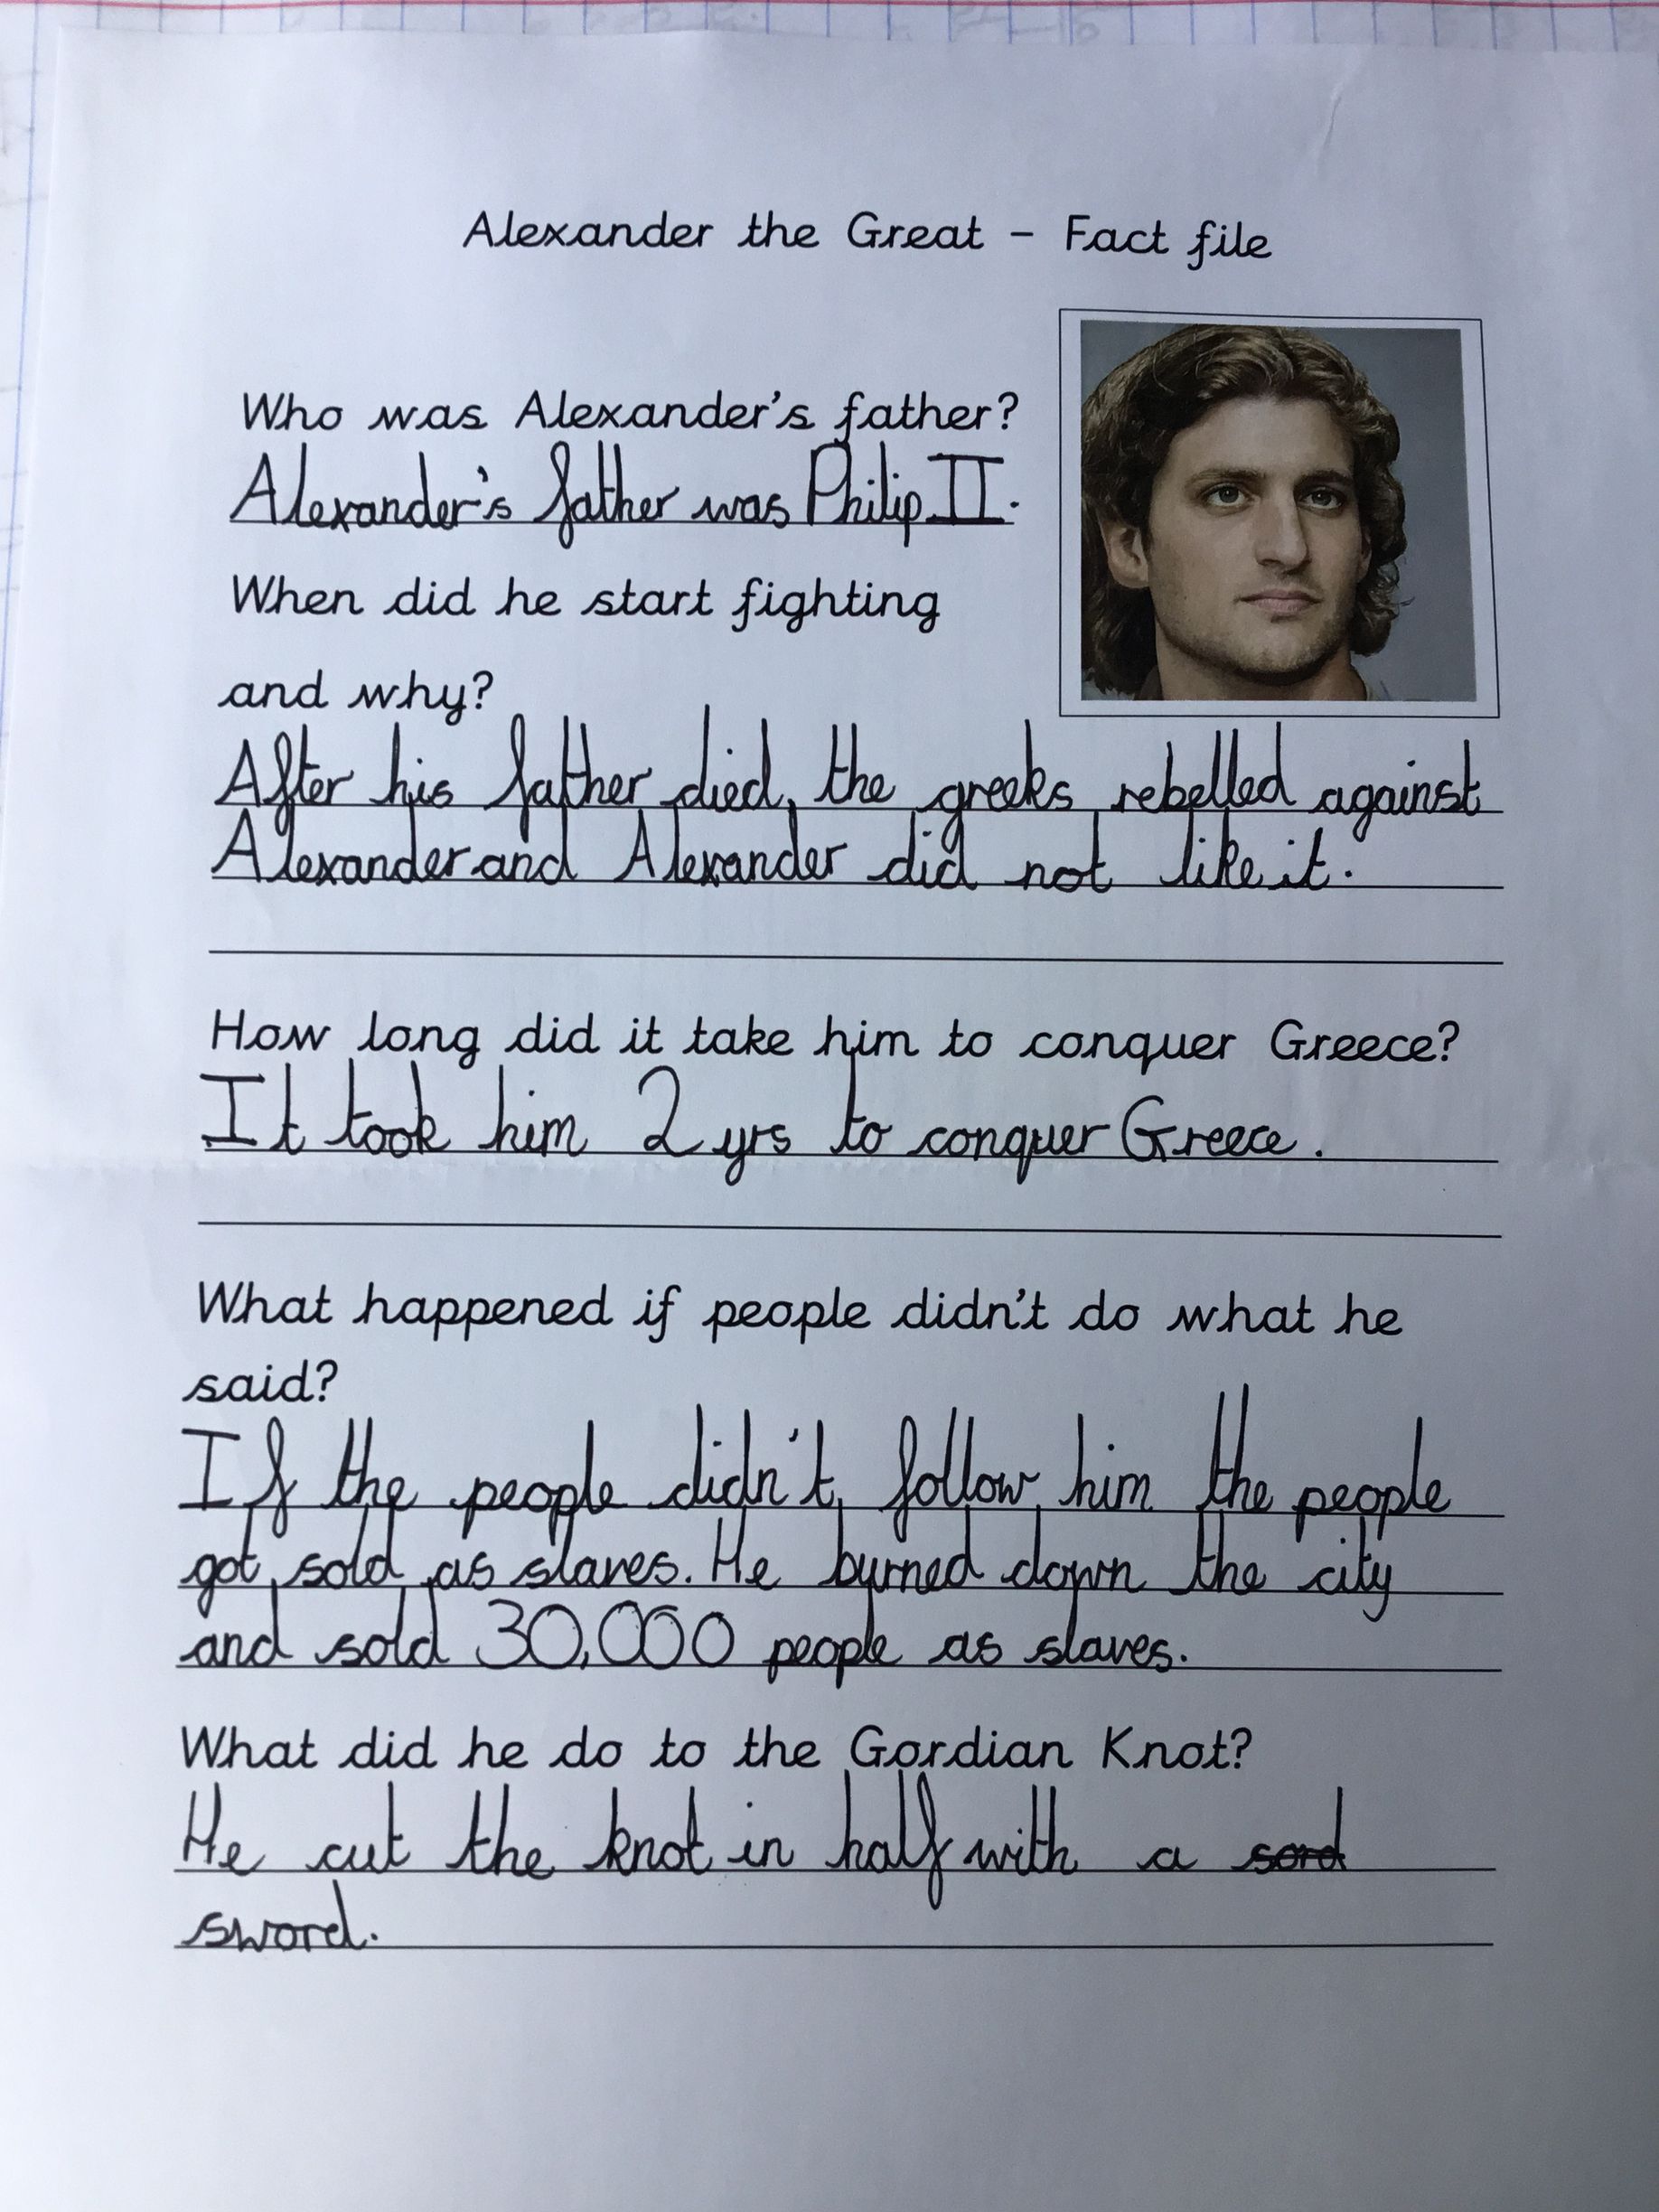 Alexander the Great - Fact file
Who was Alexander's father?
Alexander's father was Philip II.
When did he start fighting
and why?
After his father died, the greeks rebelled against
Alexander and Alexander did not like it.
How long did it take him to conquer Greece?
It took him 2 yrs to conquer Greece.
What happened if people didn't do what he
said?
If the people didn't follow him the people
got sold as slaves. He burned down the city
and sold 30,000 people as slaves.
What did he do to the Gordian Knot?
He cut the knot in half with a sord
sword.